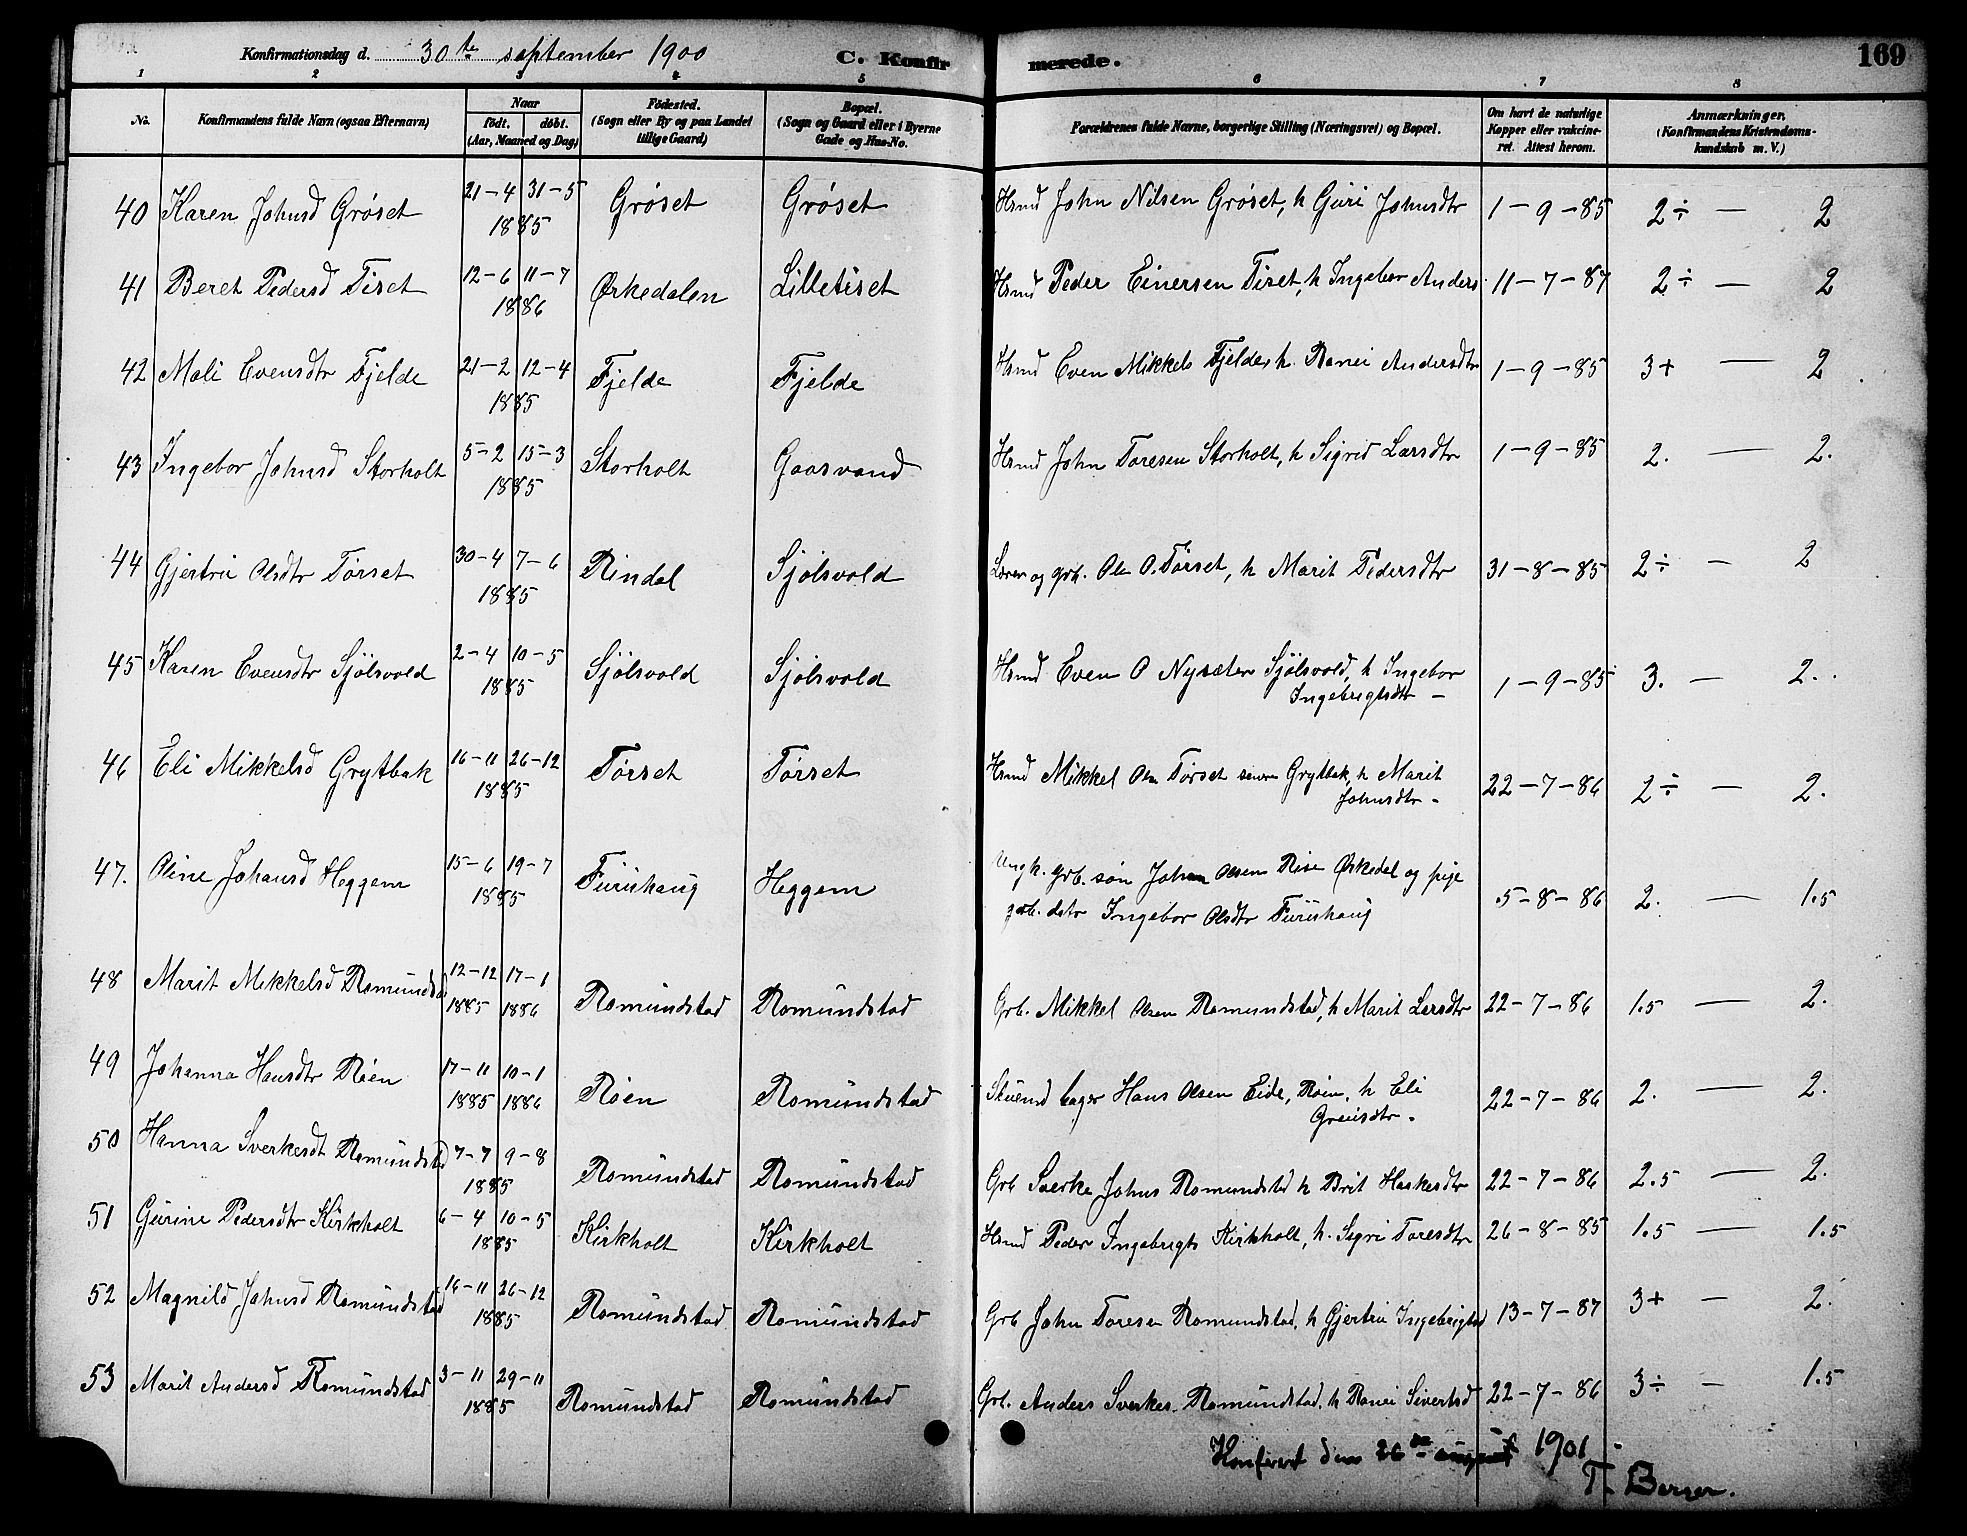 Konfirmationsdag d. 30te september 1900 C. Konfirmerede. 169
1 2 3 4 5 6 7 8
No. Konfirmandens fulde Navn (ogsaa Efternavn) Naar født. døbt. (Aar, Maaned og Dag) Födested. (Sogn eller By og paa Landet tillige Gaard) Bopæl. (Sogn og Gaard eller i Byerne Gade og Hus-No. Forældrenes fulde Navne, borgerlige Stilling (Næringsvei) og Bopæl. Om havt de naturlige Kopper eller vakcineret. Attest herom. Anmærkninger. (Konfirmandens Kristendomskundskab m. V.)
40 Karen Johnsd Grøset 21-4 31-5 1885 Grøset Grøset Hsmd John Nilsen Grøset, h Guri Johnsdtr 1-9-85 2÷ — 2
41 Beret Pedersd Tiset 12-6 11-7 1886 Ørkedalen Lilletiset Hsmd Peder Einersen Tiset, h Ingebor Anders. 11-7-87 2÷ — 2
42 Mali Evensdtr Fjelde 21-2 12-4 1885 Fjelde Fjelde Hsmd Even Mikkels Fjelde, h. Ranei Andersdtr 1-9-85 3+ — 2
43 Ingebor Johnsd Storholt 5-2 15-3 1885 Storholt Gaasvand Hsmd John Toresen Storholt, h Sigrid Larsdtr 1-9-85 2. — 2.
44 Gjertru Olsdtr Tørset 30-4 7-6 1885 Rindal Sjølsvold Lærer og grb. Ole O. Tørset, h Marit Pedersdtr 31-8-85 2÷ — 2
45 Karen Evensdtr Sjölsvold 2-4 10-5 1885 Sjölsvold Sjölsvold Hsmd Even O Nysæter Sjölsvold, h Ingebor
Ingebrigtsdtr — 1-9-85 3. — 2.
46 Eli Mikkelsd Grytbak 16-11 26-12 1885 Tørset Tørset Hsmd Mikkel Olsen Tørset senere Grytbak, h Marit
Johnsdtr. 22-7-86 2÷ — 2.
47. Oline Johansd Heggem 15-6 19-7 1885 Furuhaug Heggem Ungk. grb. søn Johan Olsen Rise Ørkedal og pige
grb. datr Ingebor Olsdtr Furuhaug 5-8-86 2. — 1.5
48 Marit Mikkelsd Romundstad 12-12 17-1 1885 1886 Romundstad Romundstad Grb. Mikkel Olsen Romundstad, h Marit Larsdtr 22-7-86 1.5 — 2.
49 Johanna Hansdtr Röen 17-11 10-1 1885 1886 Röen Romundstad Hans Olsen Eide, Röen, h Eli
22-7-86 2. — 2.
50 Hanna Sverkesdt Romundstad 7-7 9-8 1885 Romundstad Romundstad Grb Sverke Johns Romundstad h Brit Haskesdtr 22-7-86 2.5 — 2.
51 Gurine Pedersdtr Kirkholt 6-4 10-5 1885 Kirkholt Kirkholt Hsmd Peder Ingebrigts Kirkholt, h. Sigri Toresdtr 26-8-85 1.5 — 1.5
52 Magnild Johnsd Romundstad 16-11 26-12 1885 Romundstad Romundstad Grb John Toresen Romundstad, h Gjertru Ingebrigtsd 13-7-87 3+ — 2.
53 Marit Andersd Romundstad 3-11 29-11 1885 Romundstad Romundstad Grb. Anders Sverkes. Romundstad, h Ranei Sivertsd 22-7-86 3÷ — 1.5
den 26de august 1901